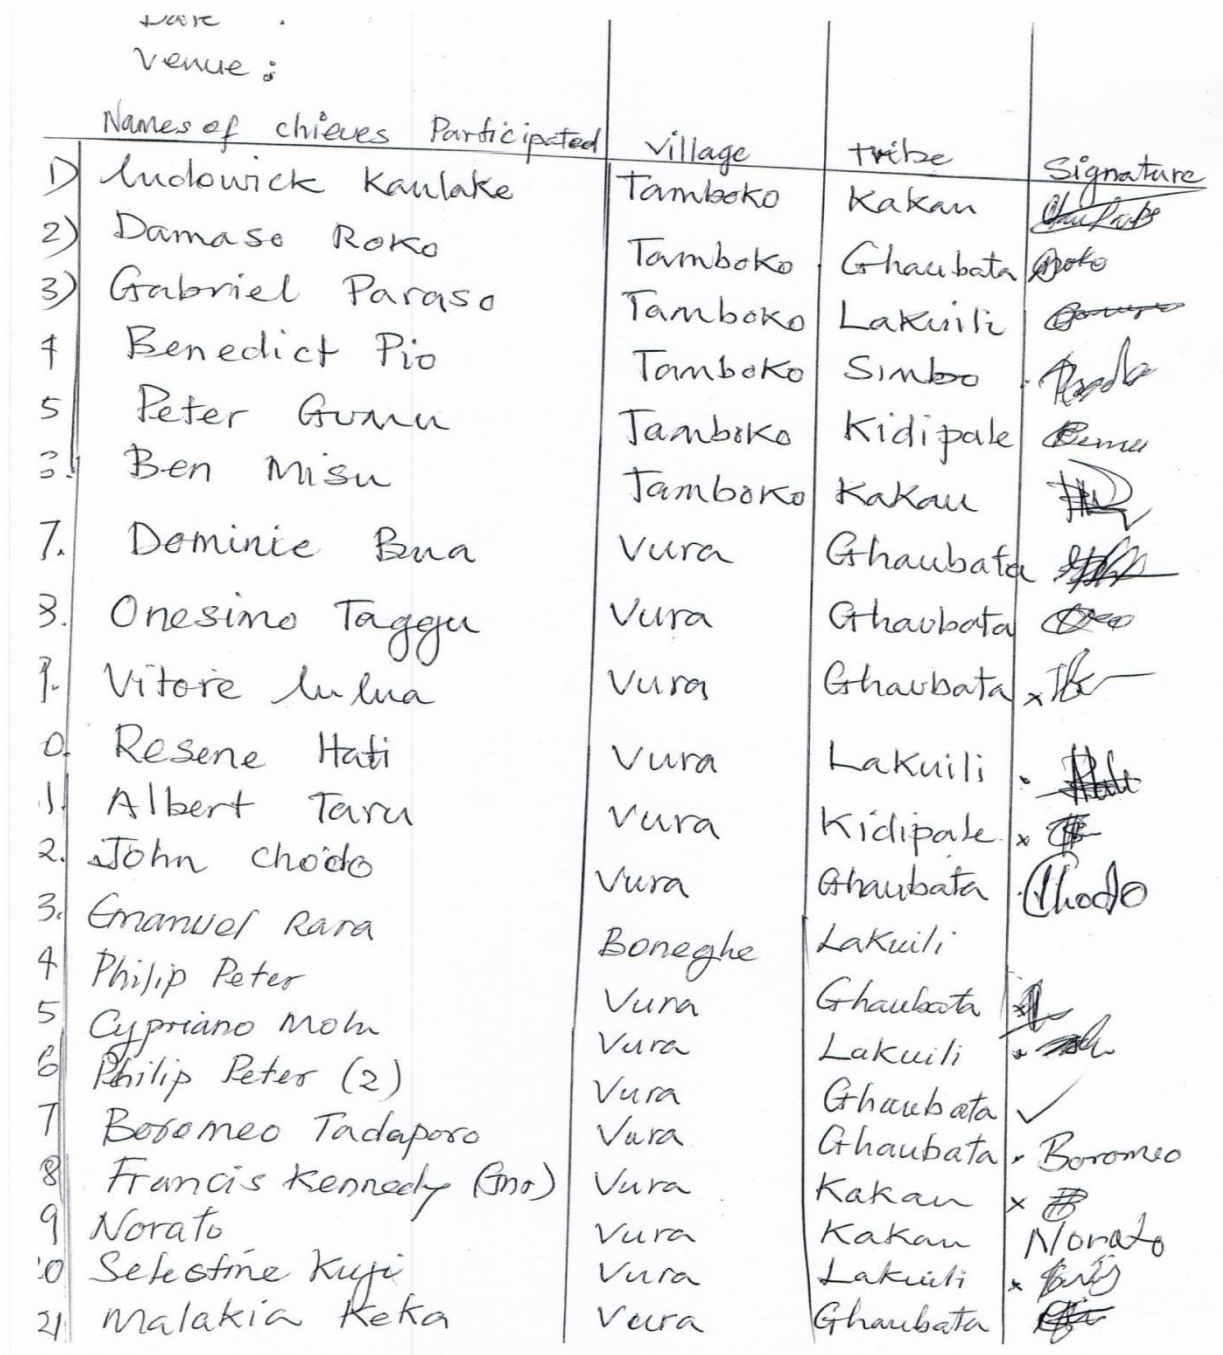 Date :
Venue :
Names of chieves Participated Village tribe Signature
1) Ludowick Kaulake Tamboko Kakau
2) Damaso Roko Tamboko Ghaubata Roko
3) Gabriel Paraso Tamboko Lakuili
4 Benedict Pio Tamboko Simbo
5 Peter Gumu Tamboko Kidipale
Ben Misu Tamboko Kakau
7. Dominic Bua Vura Ghaubata
8. Onesimo Taggu Vura Ghaubata
9. Vitore Lulua Vura Ghaubata x
0. Resene Hati Vura Lakuili
1. Albert Taru Vura Kidipale x
2. John Chodo Vura Ghaubata Chodo
3. Emanuel Rara Boneghe Lakuili
4 Philip Peter Vura Ghaubata x
5 Cypriano Molu Vura Lakuili
6 Philip Peter (2) Vura Ghaubata ✓
7 Boromeo Tadaporo Vura Ghaubata Boromeo
8 Francis Kennedy (Jnr) Vura Kakau x
9 Norato Vura Kakau Norato
0 Selestine Kuji Vura Lakuili x
21 Malakia Keka Vura Ghaubata